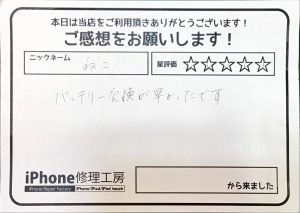 本日は当店をご利用頂きありがとうございます！
ご感想をお願いします！
ニックネーム
ねこ
星評価 ☆☆☆☆☆
バッテリー交換が早かったです
iPhone修理工房
iPhone Repair Factory iPhone/iPad/iPod touch
から来ました